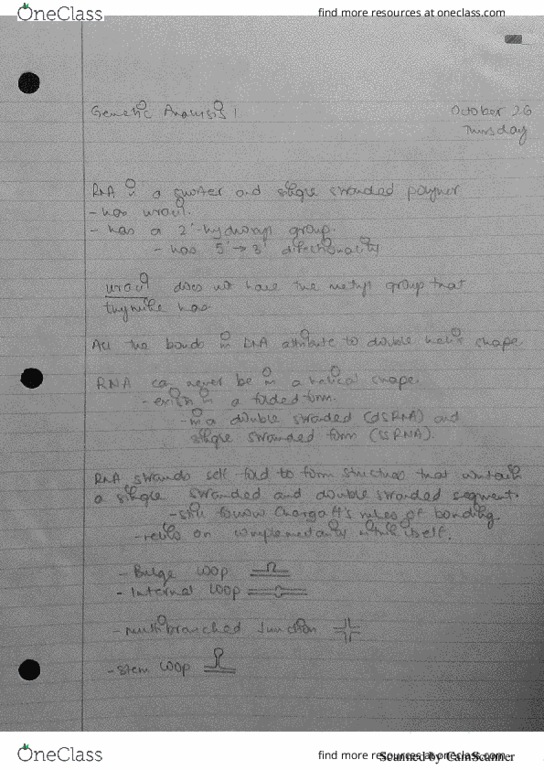 OneClass
find more resources at oneclass.com
Genetic Analysis 1
October 26
Thursday
RNA is a shorter and single stranded polymer
- has uracil.
- has a 2'-hydroxyl group.
- has 5' → 3' directionality
uracil does not have the methyl group that
thymine has
All the bonds in DNA attribute to double helix shape
RNA can never be in a helical shape.
- exists in a folded form.
- in a double stranded (dsRNA) and
single stranded form (ssRNA).
RNA strands self fold to form structures that contain
a single stranded and double stranded segment.
- still follow Chargaff's rules of bonding
- relies on complementarity within itself.
- Bulge loop
- Internal loop
- multibranched Junction
- Stem loop
OneClass
find more resources at oneclass.com
Scanned by CamScanner